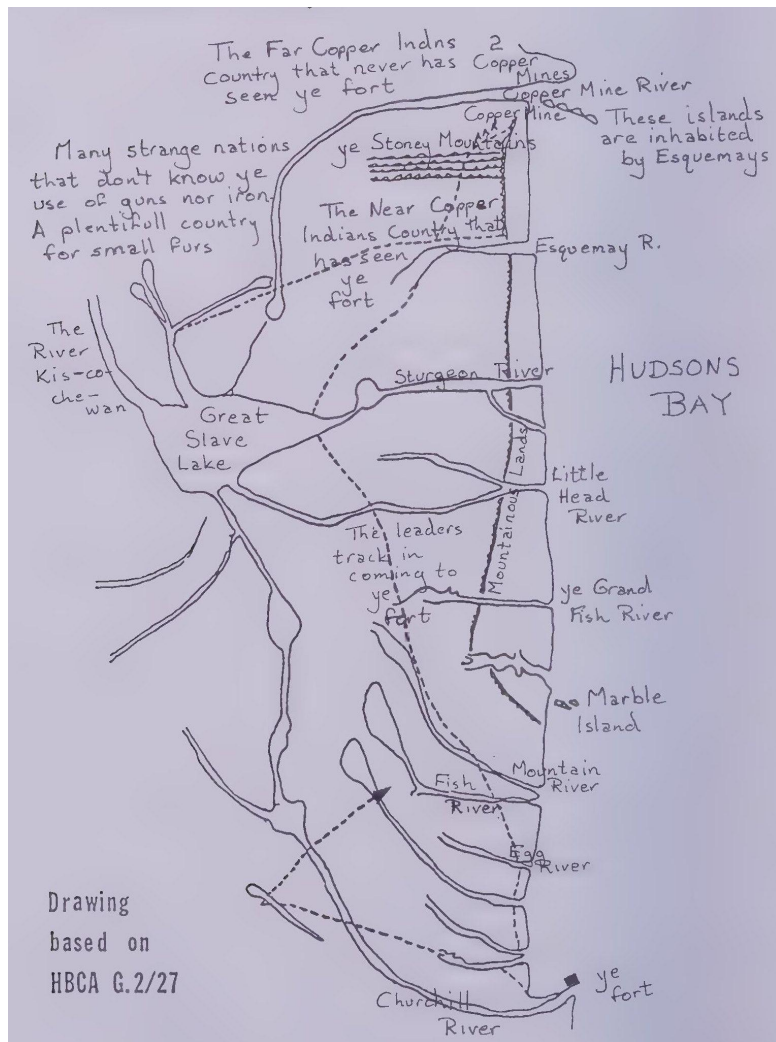 The Far Copper Indns
Country that never has
seen ye fort
2
Copper
Mines
Copper Mine River
Copper Mine
These islands
are inhabited
by Esquemays
Many strange nations
that don't know ye
use of guns nor iron.
A plentifull country
for small furs
ye Stoney Mountains
The Near Copper
Indians Country that
has seen
ye
fort
Esquemay R.
The
River
Kis-co-
che-
wan
Great
Slave
Lake
Sturgeon River
HUDSONS
BAY
Mountainous Lands
Little
Head
River
The leaders
track in
coming to
ye
fort
ye Grand
Fish River
Marble
Island
Mountain
River
Fish
River
Egg
River
Drawing
based on
HBCA G.2/27
ye
fort
Churchill
River